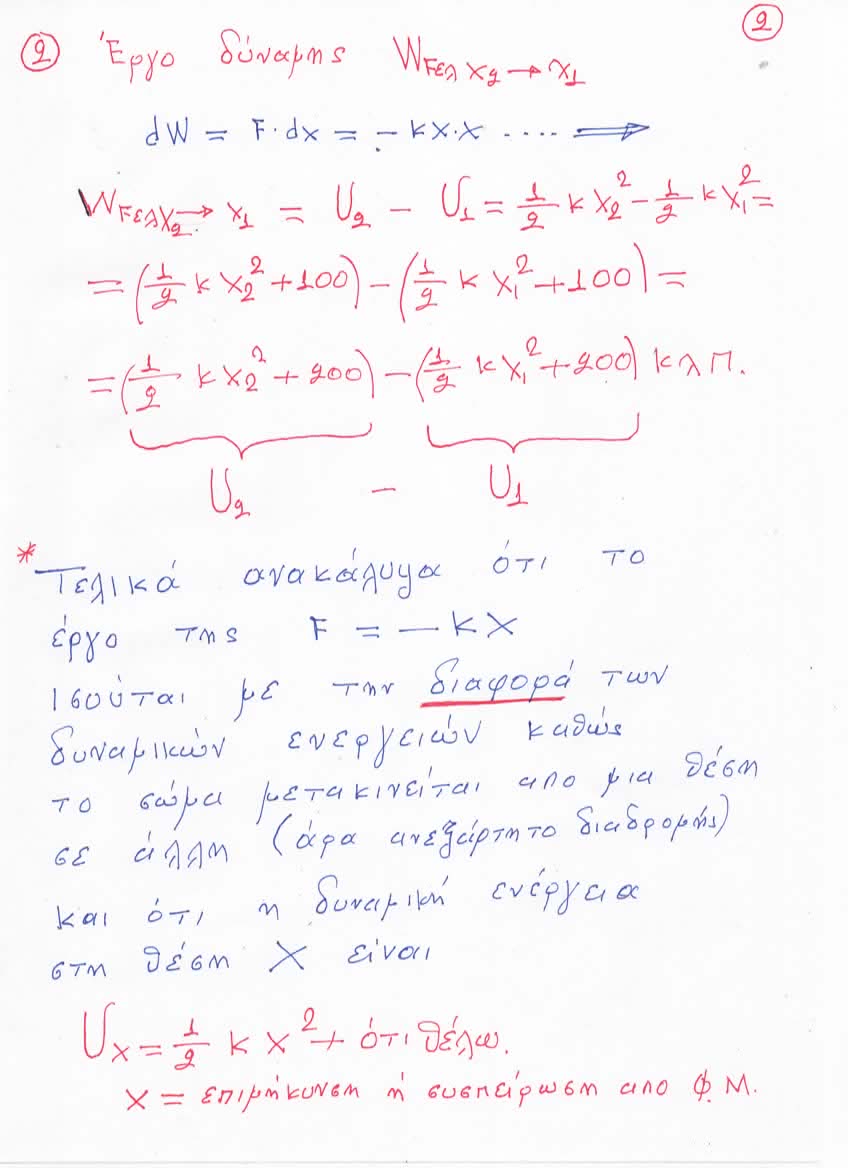 ②
② Έργο δύναμης W_{Fελ x₂→x₁}
dW = F·dx = -kx·x ....⟹
W_{Fελx₂→x₁} = U₂ - U₁ = 1/2 k x₂² - 1/2 k x₁² =
= (1/2 k x₂² + 100) - (1/2 k x₁² + 100) =
= (1/2 k x₂² + 200) - (1/2 k x₁² + 200) κλπ.
U₂ - U₁
* Τελικά ανακάλυψα ότι το
έργο της F = -kx
ισούται με την διαφορά των
δυναμικών ενεργειών καθώς
το σώμα μετακινείται απο μια θέση
σε άλλη (άρα ανεξάρτητο διαδρομής)
και ότι η δυναμική ενέργεια
στη θέση x είναι
Uₓ = 1/2 k x² + ότι θέλω.
x = επιμήκυνση ή συσπείρωση απο Φ.Μ.